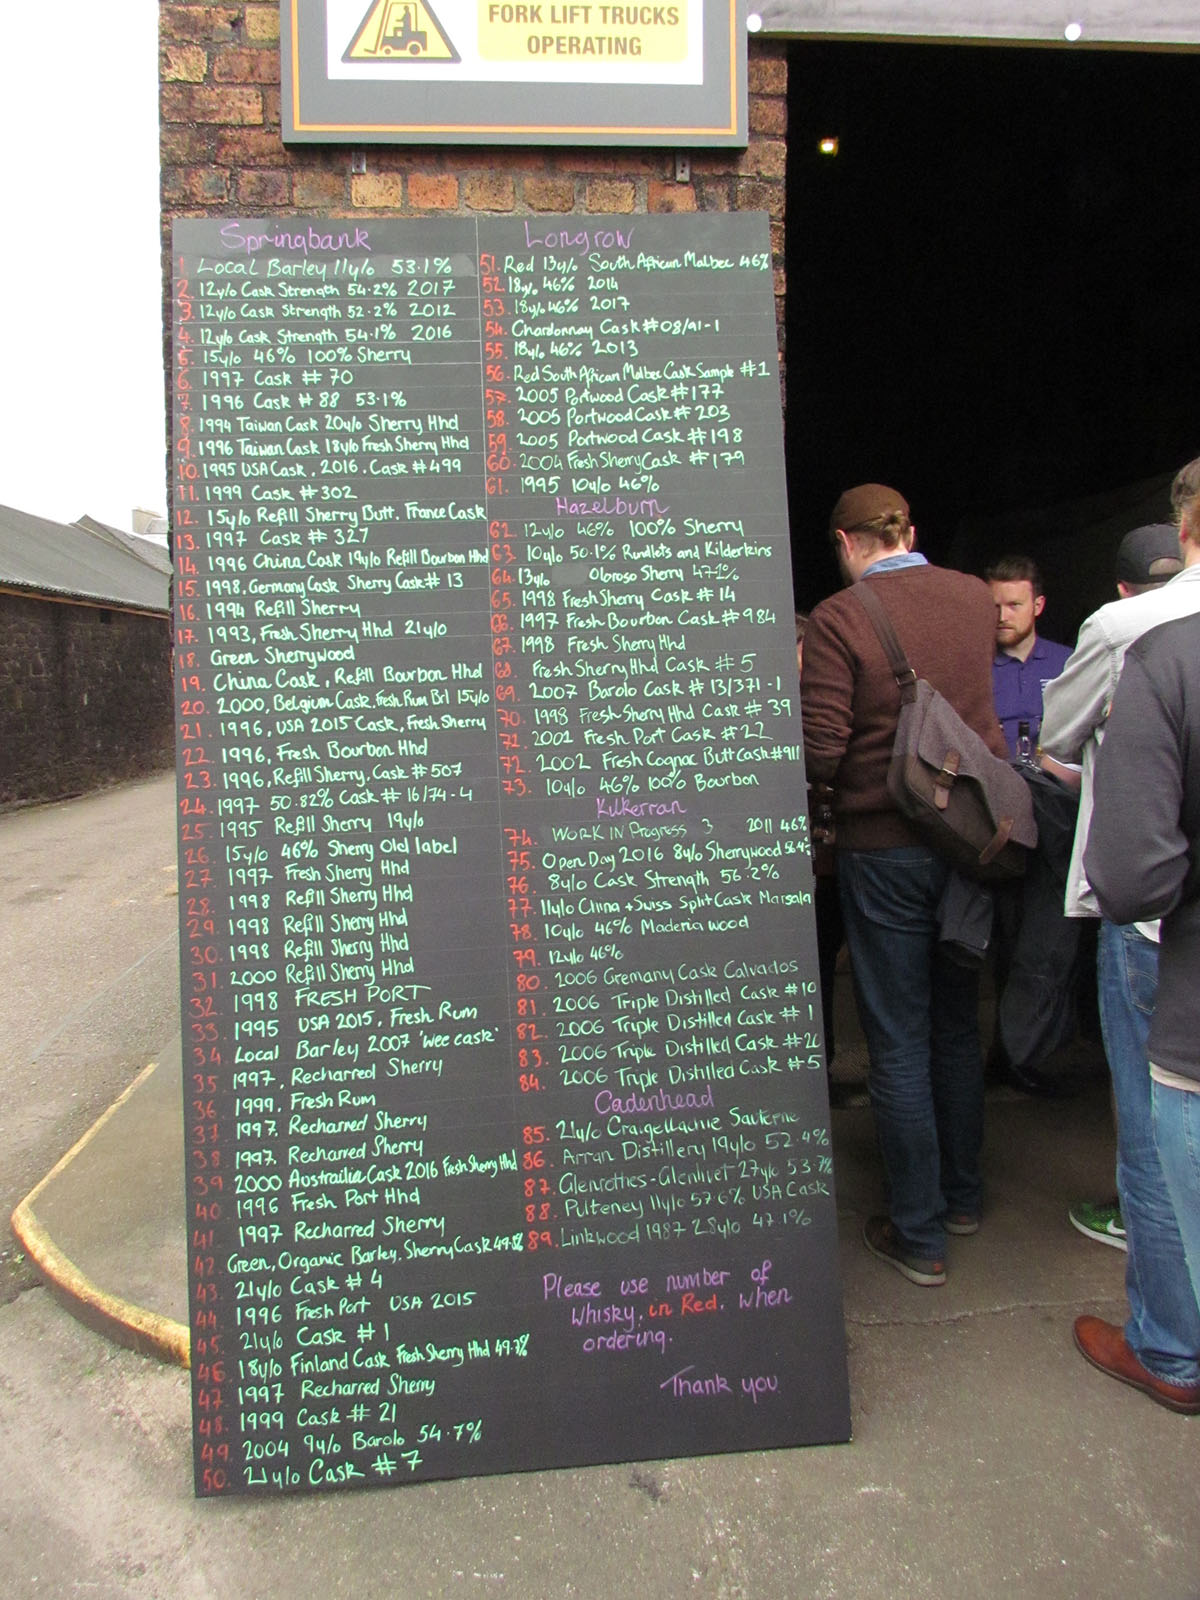 FORK LIFT TRUCKS
OPERATING
Springbank
1. Local Barley 11y/o 53.1%
2. 12y/o Cask Strength 54.2% 2017
3. 12y/o Cask Strength 52.2% 2012
4. 12y/o Cask Strength 54.1% 2016
5. 15y/o 46% 100% Sherry
6. 1997 Cask # 70
7. 1996 Cask # 88 53.1%
8. 1994 Taiwan Cask 20y/o Sherry Hhd
9. 1996 Taiwan Cask 18y/o Fresh Sherry Hhd
10. 1995 USA Cask, 2016, Cask #499
11. 1999 Cask #302
12. 15y/o Refill Sherry Butt. France Cask
13. 1997 Cask # 327
14. 1996 China Cask 19y/o Refill Bourbon Hhd
15. 1998, Germany Cask Sherry Cask # 13
16. 1994 Refill Sherry
17. 1993, Fresh Sherry Hhd 21y/o
18. Green Sherrywood
19. China Cask, Refill Bourbon Hhd
20. 2000, Belgium Cask, fresh Rum Brl 15y/o
21. 1996, USA 2015 Cask, Fresh Sherry
22. 1996, Fresh Bourbon Hhd
23. 1996, Refill Sherry, Cask #507
24. 1997 50.82% Cask # 16/74-4
25. 1995 Refill Sherry 19y/o
26. 15y/o 46% Sherry Old label
27. 1997 Fresh Sherry Hhd
28. 1998 Refill Sherry Hhd
29. 1998 Refill Sherry Hhd
30. 1998 Refill Sherry Hhd
31. 2000 Refill Sherry Hhd
32. 1998 FRESH PORT
33. 1995 USA 2015, Fresh Rum
34. Local Barley 2007 'wee cask'
35. 1997, Recharred Sherry
36. 1999, Fresh Rum
37. 1997. Recharred Sherry
38. 1997. Recharred Sherry
39. 2000 Austrailia Cask 2016 Fresh Sherry Hhd
40. 1996 Fresh Port Hhd
41. 1997 Recharred Sherry
42. Green, Organic Barley, Sherry Cask
43. 21y/o Cask # 4
44. 1996 Fresh Port USA 2015
45. 21y/o Cask # 1
46. 18y/o Finland Cask Fresh Sherry Hhd 49.7%
47. 1997 Recharred Sherry
48. 1999 Cask # 21
49. 2004 9y/o Barolo 54.7%
50. 21y/o Cask # 7
Longrow
51. Red 13y/o South African Malbec 46%
52. 18y/o 46% 2014
53. 18y/o 46% 2017
54. Chardonnay Cask #08/91-1
55. 18y/o 46% 2013
56. Red South African Malbec Cask Sample #1
57. 2005 Portwood Cask #177
58. 2005 Portwood Cask # 203
59. 2005 Portwood Cask # 198
60. 2004 Fresh Sherry Cask # 179
61. 1995 10y/o 46%
Hazelburn
62. 12y/o 46% 100% Sherry
63. 10y/o 50.1% Rundlets and Kilderkins
64. 13y/o Oloroso Sherry 47.1%
65. 1998 Fresh Sherry Cask # 14
66. 1997 Fresh Bourbon Cask #984
67. 1998 Fresh Sherry Hhd
68. Fresh Sherry Hhd Cask # 5
69. 2007 Barolo Cask # 13/371-1
70. 1998 Fresh Sherry Hhd Cask # 39
71. 2001 Fresh Port Cask #22
72. 2002 Fresh Cognac Butt Cask #911
73. 10y/o 46% 100% Bourbon
Kilkerran
74. WORK IN Progress 3 2011 46%
75. Open Day 2016 8y/o Sherrywood
76. 8y/o Cask Strength 56.2%
77. 11y/o China + Swiss Split Cask Marsala
78. 10y/o 46% Maderia wood
79. 12y/o 46%
80. 2006 Gremany Cask Calvados
81. 2006 Triple Distilled Cask #10
82. 2006 Triple Distilled Cask # 1
83. 2006 Triple Distilled Cask
84. 2006 Triple Distilled Cask #5
Cadenhead
85. 21y/o Craigellachie Sauterne
86. Arran Distillery 19y/o 52.4%
87. Glenrothes-Glenlivet 27y/o 53.7%
88. Pulteney 11y/o 57.6% USA Cask
89. Linkwood 1987 28y/o 47.1%
Please use number of
Whisky, in Red, when
ordering.
Thank you